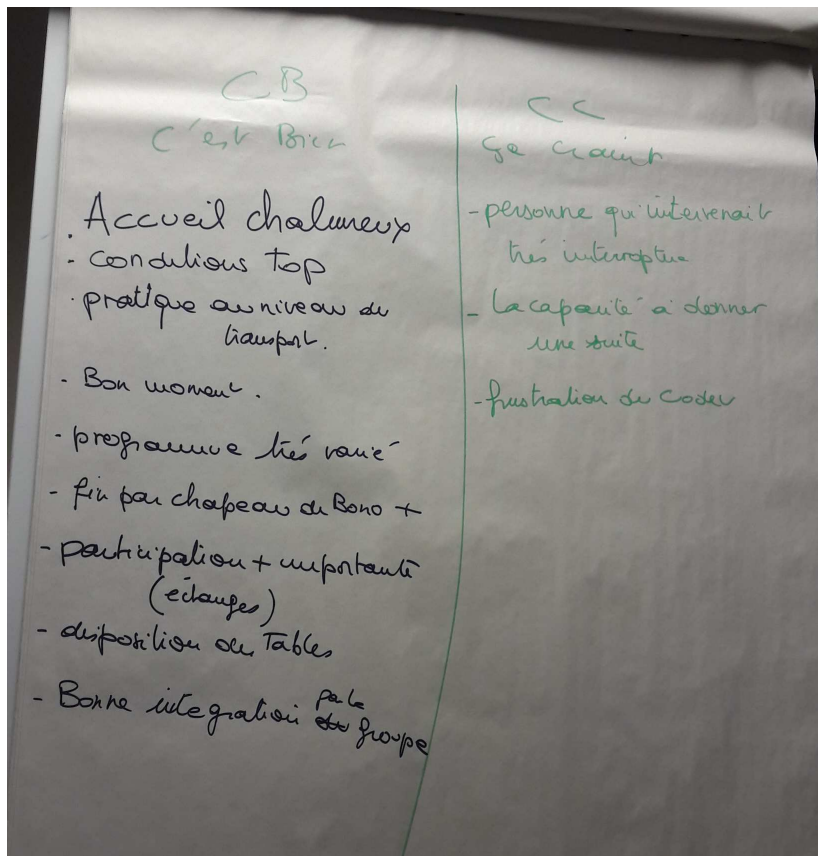 CB
C'est Bien
. Accueil chaleureux
- conditions top
. pratique au niveau du
transport.
- Bon moment.
- programme très varié
- fin par chapeau de Bono +
- participation + importante
(échanges)
- disposition des Tables
- Bonne integration par le groupe
CC
ça craint
- personne qui intervenait
très interruptive
- La capacité à donner
une suite
- frustration du Codev